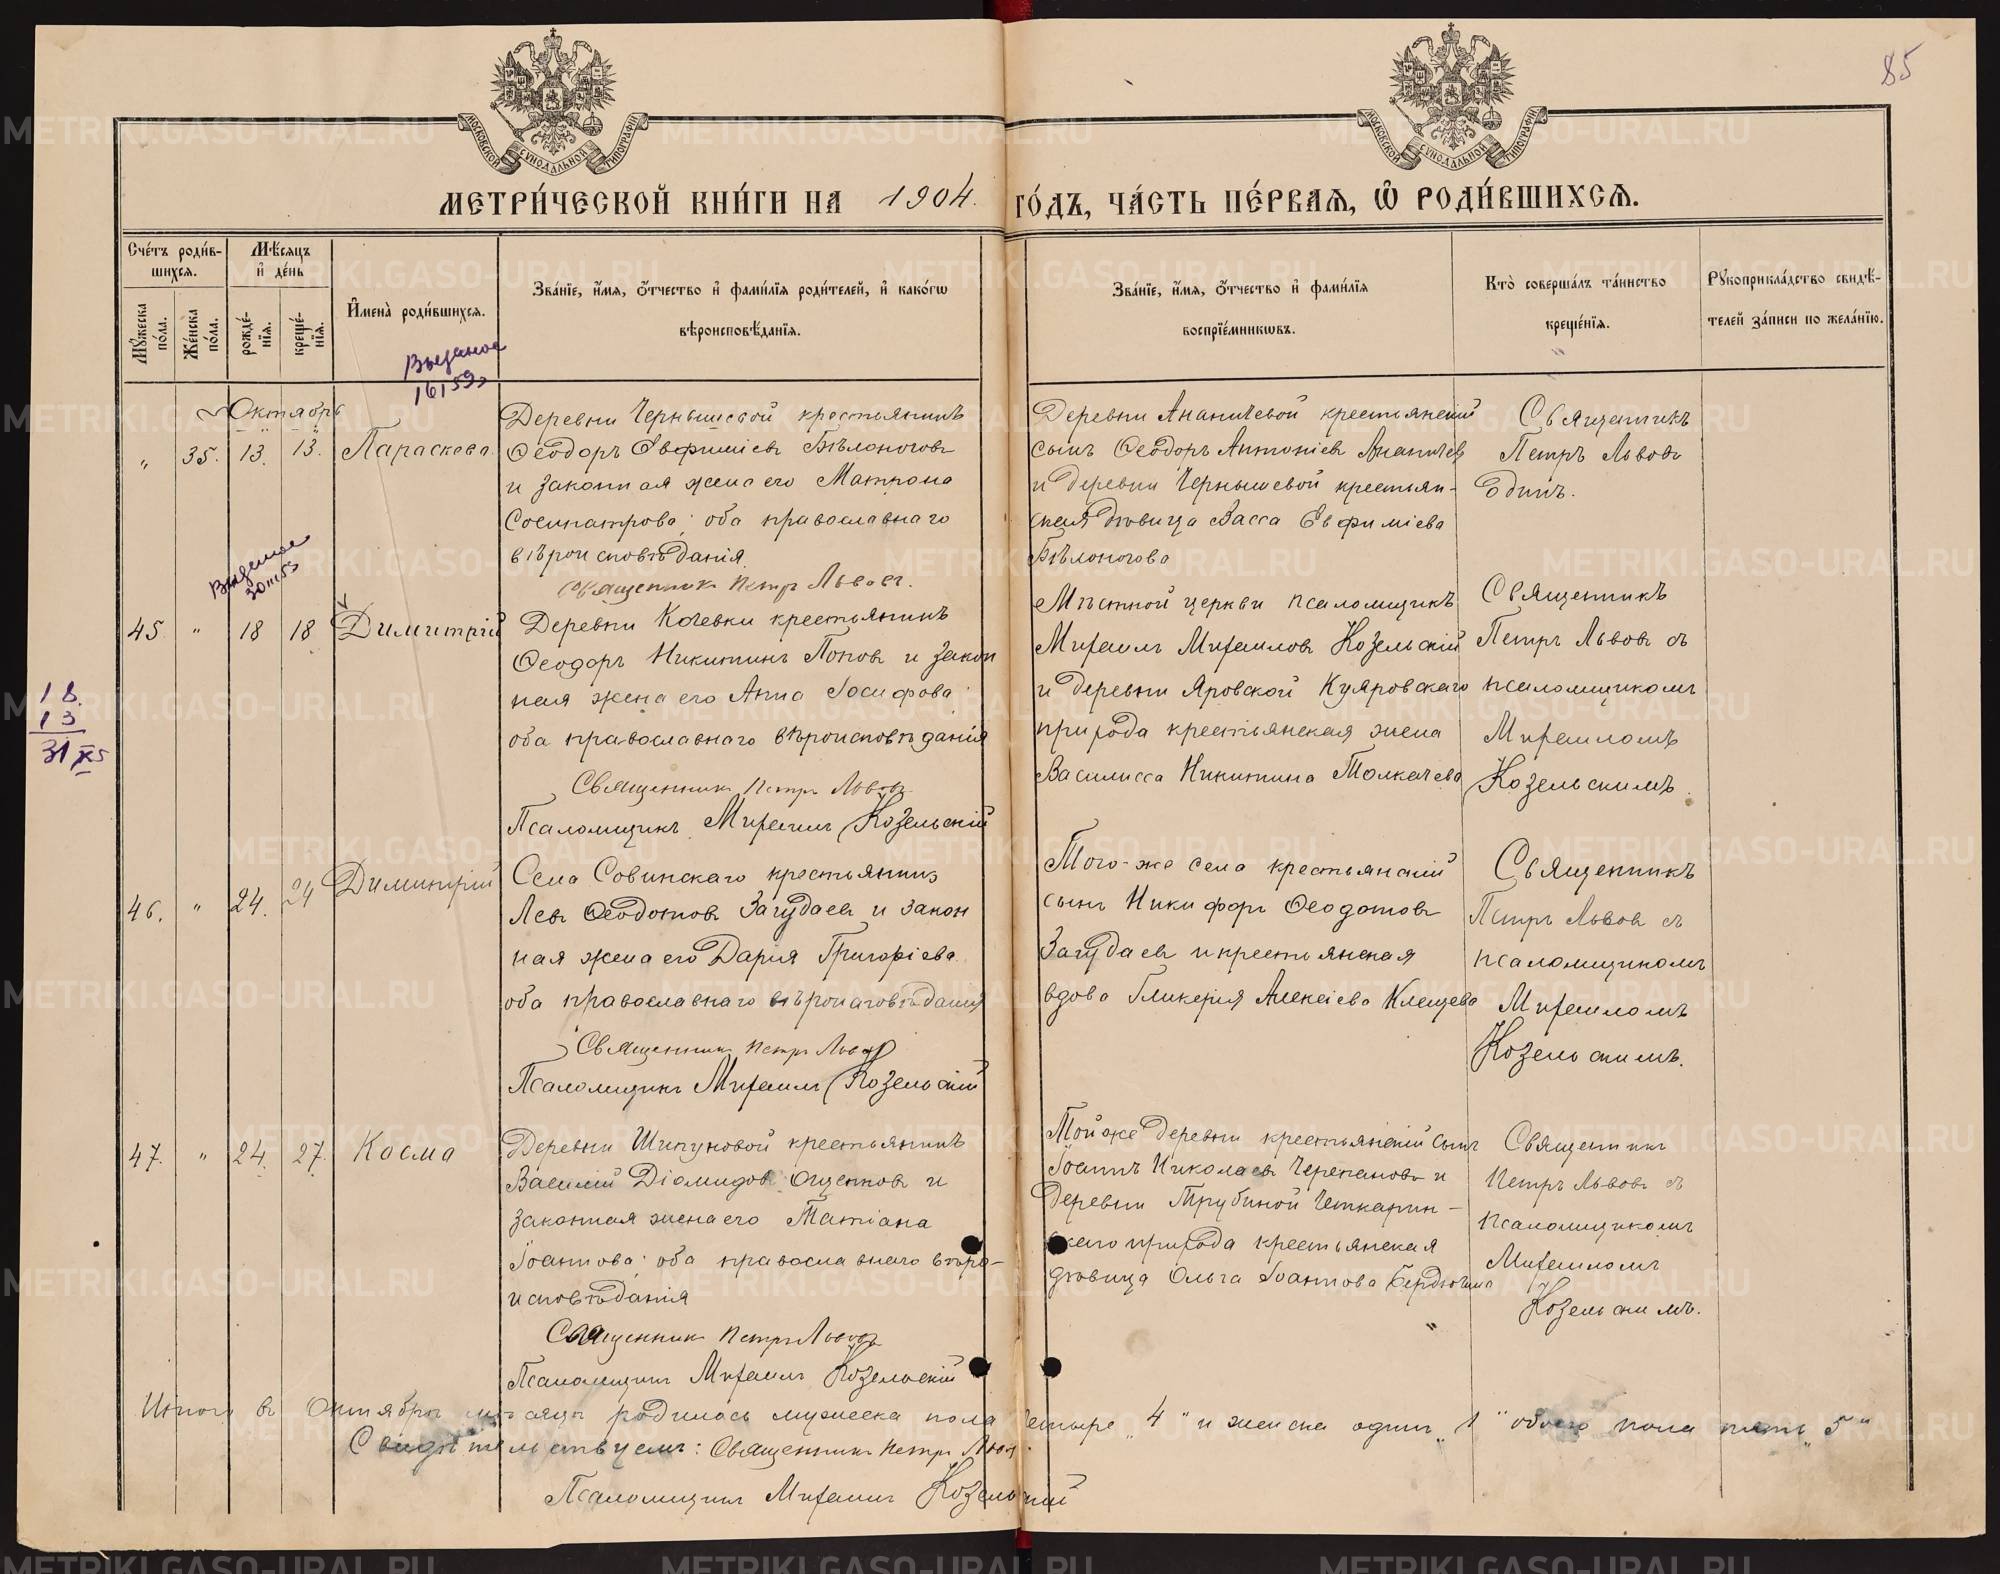 85
МОСКОВСКОЙ СУНОДАЛЬНОЙ ТИПОГРАФІИ
МОСКОВСКОЙ СУНОДАЛЬНОЙ ТИПОГРАФІИ
МЕТРИ́ЧЕСКОЙ КНИ́ГИ НА 1904. ГО́ДЪ, ЧА́СТЬ ПЕ́РВАѦ, Ѽ РОДИ́ВШИХСѦ.
Сче́тъ роди́в-
шихсѧ.
Мѣ́сѧцъ
и҆ де́нь
Мꙋ́жеска по́ла.
Же́нска по́ла.
рожде́-
нїѧ.
креще́-
нїѧ.
И҆мена̀ роди́вшихсѧ.
Зва́нїе, и҆́мѧ, ѻ҆́тчество и҆ фами́лїѧ роди́телей, и҆ како́гѡ
вѣроисповѣ́данїѧ.
Зва́нїе, и҆́мѧ, ѻ҆́тчество и҆ фами́лїѧ
воспрїе́мникѡвъ.
Кто̀ соверша́лъ та́инство
креще́нїѧ.
Рꙋкоприкла́дство свидѣ́-
телей за́писи по жела́нїю.
Октябрь
„ 35. 13. 13. Параскева.
Деревни Чернышевой крестьянинъ
Ѳеодоръ Евфиміевъ Бѣлоноговъ
и законная жена его Матрона
Сосипатрова; оба православнаго
вѣроисповѣданія.
Священникъ Петръ Львовъ.
Деревни Ананичевой крестьянскій
сынъ Ѳеодоръ Антоніевъ Ананичев
и деревни Чернышевой крестьян-
ская дѣвица Васса Евфиміева
Бѣлоногова
Священникъ
Петръ Львовъ
Одинъ.
45. „ 18 18 Димитрій
Деревни Кочевки крестьянинъ
Ѳеодоръ Никитинъ Поповъ и закон
ная жена его Анна Іосифова;
оба православнаго вѣроисповѣданія
Священникъ Петръ Львовъ
Псаломщикъ Михаилъ Козельскій
Мѣстной церкви псаломщикъ
Михаилъ Михаиловъ Козельскій
и деревни Яровской Куяровскаго
прихода крестьянская жена
Василисса Никитина Толкачева
Священникъ
Петръ Львовъ съ
псаломщикомъ
Михаиломъ
Козельскимъ.
18.
13
31 X 5
46. „ 24. 24 Димитрій
Села Совинскаго крестьянинъ
Левъ Ѳеодотовъ Загудаевъ и закон
ная жена его Дарія Григоріева
оба православнаго вѣроисповѣданія
Священникъ Петръ Львовъ
Псаломщикъ Михаилъ Козельскій
Того-же села крестьянскій
сынъ Никифоръ Ѳеодотовъ
Загудаевъ и крестьянская
вдова Гликерія Алексіева Клещева
Священникъ
Петръ Львовъ съ
псаломщикомъ
Михаиломъ
Козельскимъ.
47. „ 24. 27. Косма
Деревни Шипуновой крестьянинъ
Василій Діомидовъ Ощепковъ и
законная жена его Татіана
Іоаннова; оба православнаго вѣро-
исповѣданія
Священникъ Петръ Львовъ
Псаломщикъ Михаилъ Козельскій
Той же деревни крестьянскій сынъ
Іоаннъ Николаевъ Черепановъ и
деревни Трубиной Четкарин-
скаго прихода крестьянская
дѣвица Ольга Іоаннова Бердюгина
Священникъ
Петръ Львовъ съ
псаломщикомъ
Михаиломъ
Козельскимъ.
Итого въ Октябрѣ мѣсяцѣ родилось мужеска пола четыре „4" и женска одинъ „1" обоего пола пять „5"
Свидѣтельствуемъ: Священникъ Петръ Львовъ.
Псаломщикъ Михаилъ Козельскій
METRIKI.GASO-URAL.RU